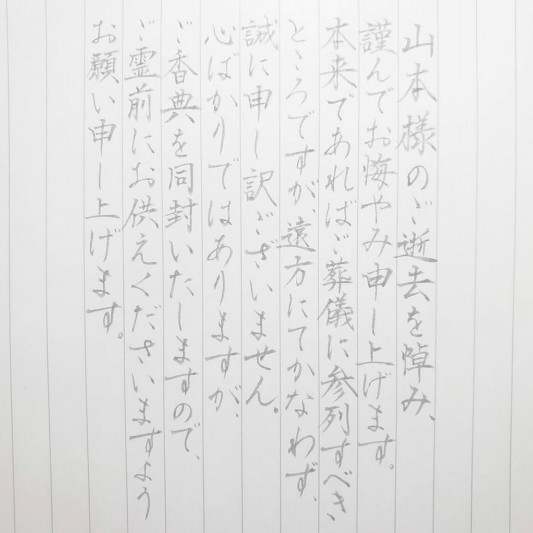 山本様のご逝去を悼み、
謹んでお悔やみ申し上げます。
本来であればご葬儀に参列すべき
ところですが、遠方にてかなわず、
誠に申し訳ございません。
心ばかりではありますが、
ご香典を同封いたしますので、
ご霊前にお供えくださいますよう
お願い申し上げます。